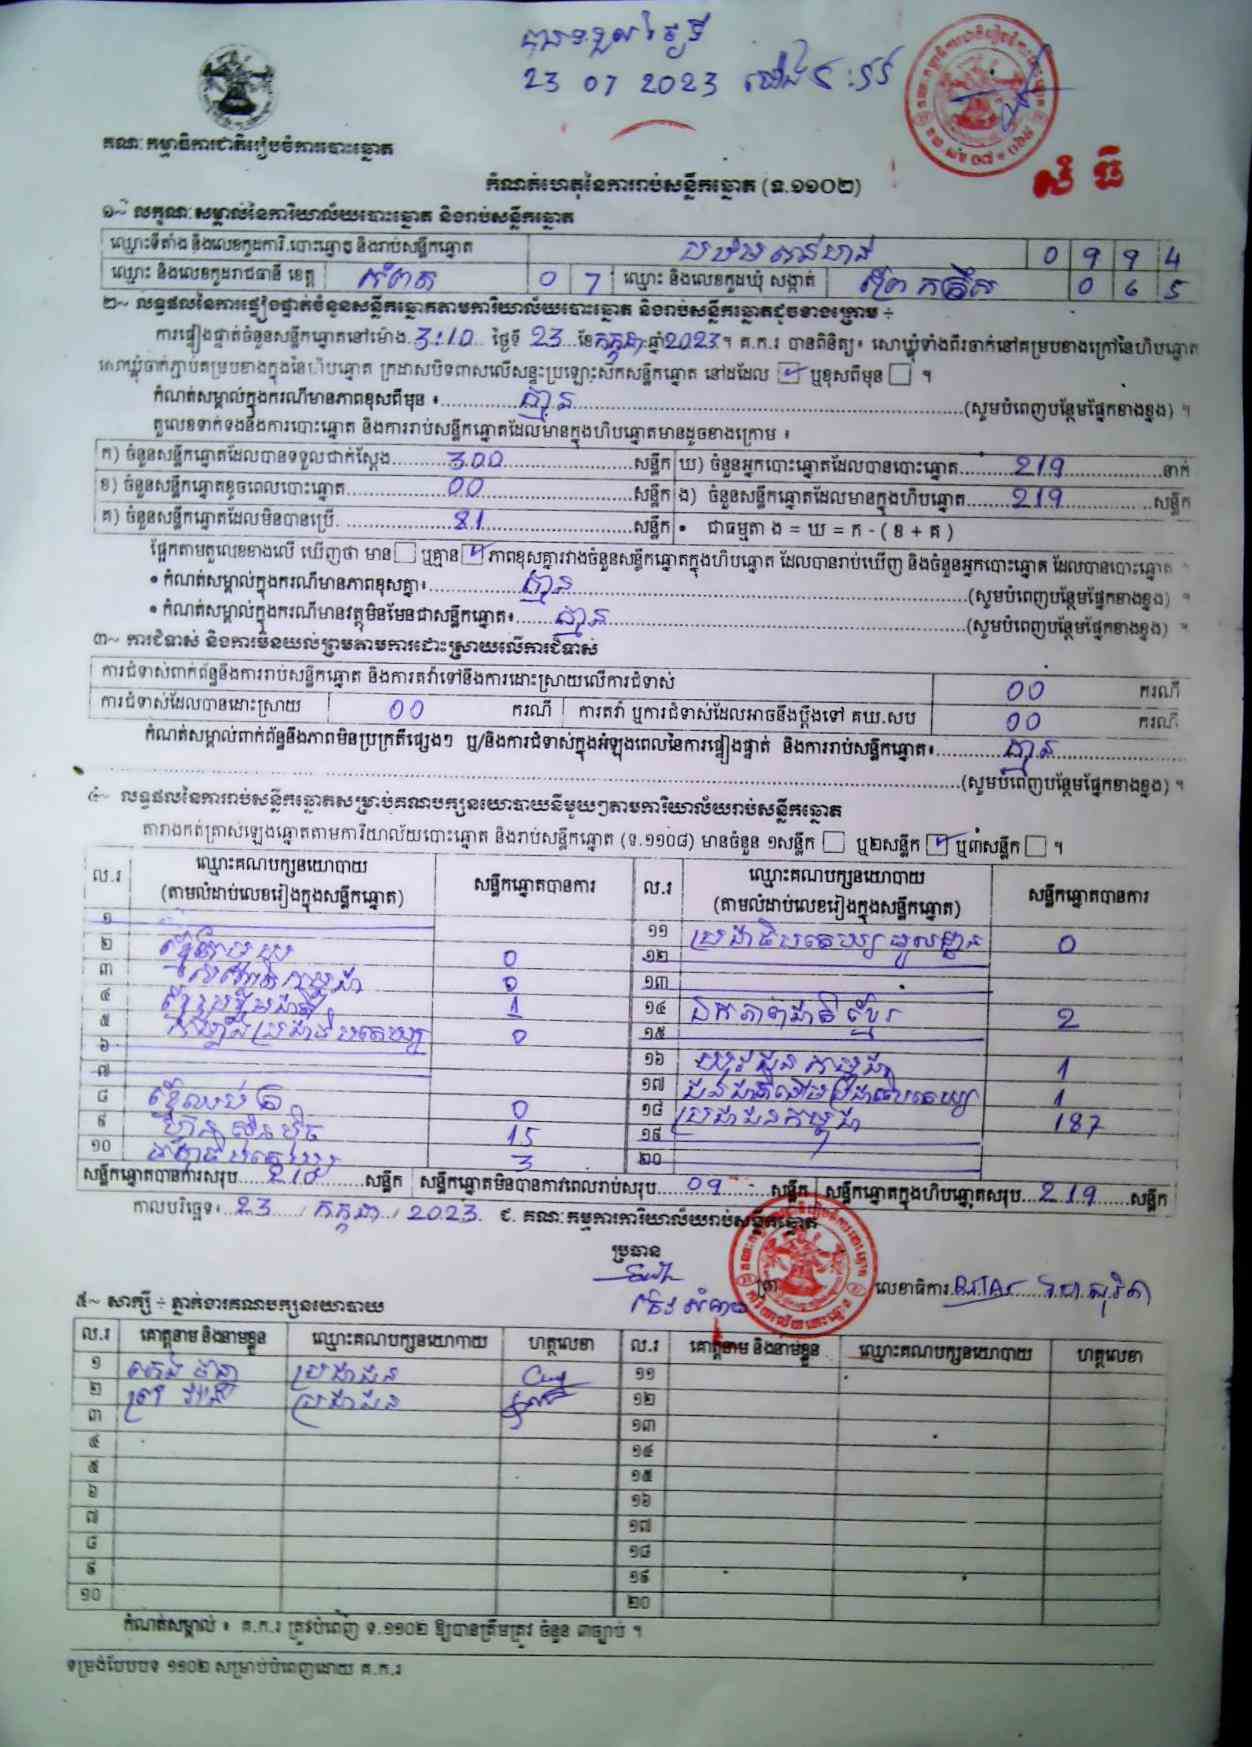 បានទទួលថ្ងៃទី
23 07 2023
គណៈកម្មាធិការជាតិរៀបចំការបោះឆ្នោត
សំ ធី
កំណត់ហេតុនៃការរាប់សន្លឹកឆ្នោត (ទ.១១០២)
១~ លក្ខណៈសម្គាល់នៃការិយាល័យបោះឆ្នោត និងរាប់សន្លឹកឆ្នោត
ឈ្មោះទីតាំង និងលេខកូដការិ.បោះឆ្នោត និងរាប់សន្លឹកឆ្នោត 0 9 9 4
ឈ្មោះ និងលេខកូដរាជធានី ខេត្ត កំពត 0 7 ឈ្មោះ និងលេខកូដឃុំ សង្កាត់ 0 6 5
២~ លទ្ធផលនៃការផ្ទៀងផ្ទាត់ចំនួនសន្លឹកឆ្នោតតាមការិយាល័យបោះឆ្នោត និងរាប់សន្លឹកឆ្នោតដូចខាងក្រោម ÷
ការផ្ទៀងផ្ទាត់ចំនួនសន្លឹកឆ្នោតនៅម៉ោង 3:10 ថ្ងៃទី 23 ខែកក្កដា ឆ្នាំ2023 ។ គ.ក.រ បានពិនិត្យ៖ សោឃ្លុំទាំងពីរចាក់នៅគម្របខាងក្រៅនៃហិបឆ្នោត
សោឃ្លុំចាក់ភ្ជាប់គម្របខាងក្នុងនៃហិបឆ្នោត ក្រដាសបិទពាសលើសន្ទះប្រឡោះសឹកសន្លឹកឆ្នោត នៅដដែល ☑ ឬខុសពីមុន ☐ ។
កំណត់សម្គាល់ក្នុងករណីមានភាពខុសពីមុន ៖ គ្មាន (សូមបំពេញបន្ថែមផ្នែកខាងខ្នង) ។
តួលេខទាក់ទងនឹងការបោះឆ្នោត និងការរាប់សន្លឹកឆ្នោតដែលមានក្នុងហិបឆ្នោតមានដូចខាងក្រោម ៖
ក) ចំនួនសន្លឹកឆ្នោតដែលបានទទួលជាក់ស្ដែង 300 សន្លឹក ឃ) ចំនួនអ្នកបោះឆ្នោតដែលបានបោះឆ្នោត 219 នាក់
ខ) ចំនួនសន្លឹកឆ្នោតខូចពេលបោះឆ្នោត 00 សន្លឹក ង) ចំនួនសន្លឹកឆ្នោតដែលមានក្នុងហិបឆ្នោត 219 សន្លឹក
គ) ចំនួនសន្លឹកឆ្នោតដែលមិនបានប្រើ. 81 សន្លឹក • ជាធម្មតា ង = ឃ = ក - ( ខ + គ )
ផ្អែកតាមតួលេខខាងលើ ឃើញថា មាន ☐ ឬគ្មាន ☑ ភាពខុសគ្នារវាងចំនួនសន្លឹកឆ្នោតក្នុងហិបឆ្នោត ដែលបានរាប់ឃើញ និងចំនួនអ្នកបោះឆ្នោត ដែលបានបោះឆ្នោត ។
• កំណត់សម្គាល់ក្នុងករណីមានភាពខុសគ្នា៖ គ្មាន (សូមបំពេញបន្ថែមផ្នែកខាងខ្នង) ។
• កំណត់សម្គាល់ក្នុងករណីមានវត្ថុមិនមែនជាសន្លឹកឆ្នោត៖ គ្មាន (សូមបំពេញបន្ថែមផ្នែកខាងខ្នង) ។
៣~ ការជំទាស់ និងការមិនយល់ព្រមតាមការដោះស្រាយលើការជំទាស់
ការជំទាស់ពាក់ព័ន្ធនឹងការរាប់សន្លឹកឆ្នោត និងការតវ៉ាទៅនឹងការដោះស្រាយលើការជំទាស់ 00 ករណី
ការជំទាស់ដែលបានដោះស្រាយ 00 ករណី ការតវ៉ា ឬការជំទាស់ដែលអាចនឹងប្ដឹងទៅ គឃ.សប 00 ករណី
កំណត់សម្គាល់ពាក់ព័ន្ធនឹងភាពមិនប្រក្រតីផ្សេងៗ ឬ/និងការជំទាស់ក្នុងអំឡុងពេលនៃការផ្ទៀងផ្ទាត់ និងការរាប់សន្លឹកឆ្នោត៖ គ្មាន
(សូមបំពេញបន្ថែមផ្នែកខាងខ្នង) ។
៤~ លទ្ធផលនៃការរាប់សន្លឹកឆ្នោតសម្រាប់គណបក្សនយោបាយនីមួយៗតាមការិយាល័យរាប់សន្លឹកឆ្នោត
តារាងកត់ត្រាសំឡេងឆ្នោតតាមការិយាល័យបោះឆ្នោត និងរាប់សន្លឹកឆ្នោត (ទ.១១០៨) មានចំនួន ១សន្លឹក ☐ ឬ២សន្លឹក ☑ ឬ៣សន្លឹក ☐ ។
ល.រ ឈ្មោះគណបក្សនយោបាយ (តាមលំដាប់លេខរៀងក្នុងសន្លឹកឆ្នោត) សន្លឹកឆ្នោតបានការ ល.រ ឈ្មោះគណបក្សនយោបាយ (តាមលំដាប់លេខរៀងក្នុងសន្លឹកឆ្នោត) សន្លឹកឆ្នោតបានការ
១ ១១ ប្រជាធិបតេយ្យមូលដ្ឋាន 0
២ ខ្មែររួបរួម 0 ១២
៣ 0 ១៣
៤ 1 ១៤ ឯកភាពជាតិខ្មែរ 2
៥ 0 ១៥
៦ ១៦ យុវជនកម្ពុជា 1
៧ ១៧ ជនជាតិដើមប្រជាធិបតេយ្យ 1
៨ ខ្មែរឈប់ក្រ 0 ១៨ ប្រជាជនកម្ពុជា 187
៩ ហ៊្វុនស៊ិនប៉ិច 15 ១៩
១០ 3 ២០
សន្លឹកឆ្នោតបានការសរុប 210 សន្លឹក សន្លឹកឆ្នោតមិនបានការពេលរាប់សរុប 09 សន្លឹក សន្លឹកឆ្នោតក្នុងហិបឆ្នោតសរុប 219 សន្លឹក
កាលបរិច្ឆេទ៖ 23 / កក្កដា / 2023. ជ. គណៈកម្មការការិយាល័យរាប់សន្លឹកឆ្នោត
ប្រធាន
លេខាធិការ
៥~ សាក្សី ÷ ភ្នាក់ងារគណបក្សនយោបាយ
ល.រ គោត្តនាម និងនាមខ្លួន ឈ្មោះគណបក្សនយោបាយ ហត្ថលេខា ល.រ គោត្តនាម និងនាមខ្លួន ឈ្មោះគណបក្សនយោបាយ ហត្ថលេខា
១ ប្រជាជន ១១
២ ប្រជាជន ១២
៣ ១៣
៤ ១៤
៥ ១៥
៦ ១៦
៧ ១៧
៨ ១៨
៩ ១៩
១០ ២០
កំណត់សម្គាល់ ៖ គ.ក.រ ត្រូវបំពេញ ទ.១១០២ ឱ្យបានត្រឹមត្រូវ ចំនួន ៣ច្បាប់ ។
ទម្រង់បែបបទ ១១០២ សម្រាប់បំពេញដោយ គ.ក.រ